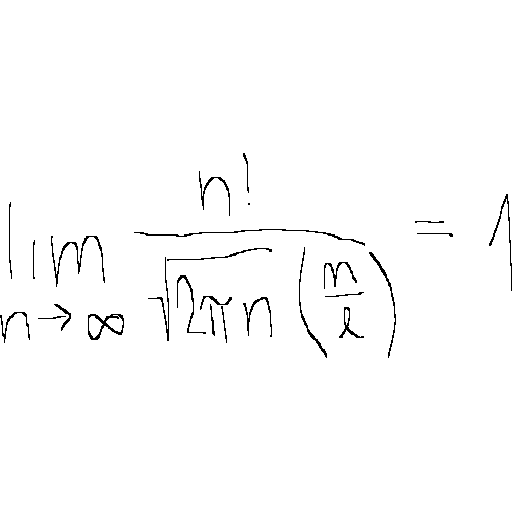 \lim_{n \to \infty} \frac{n!}{\sqrt{2\pi n} \left( \frac{n}{e} \right)} = 1